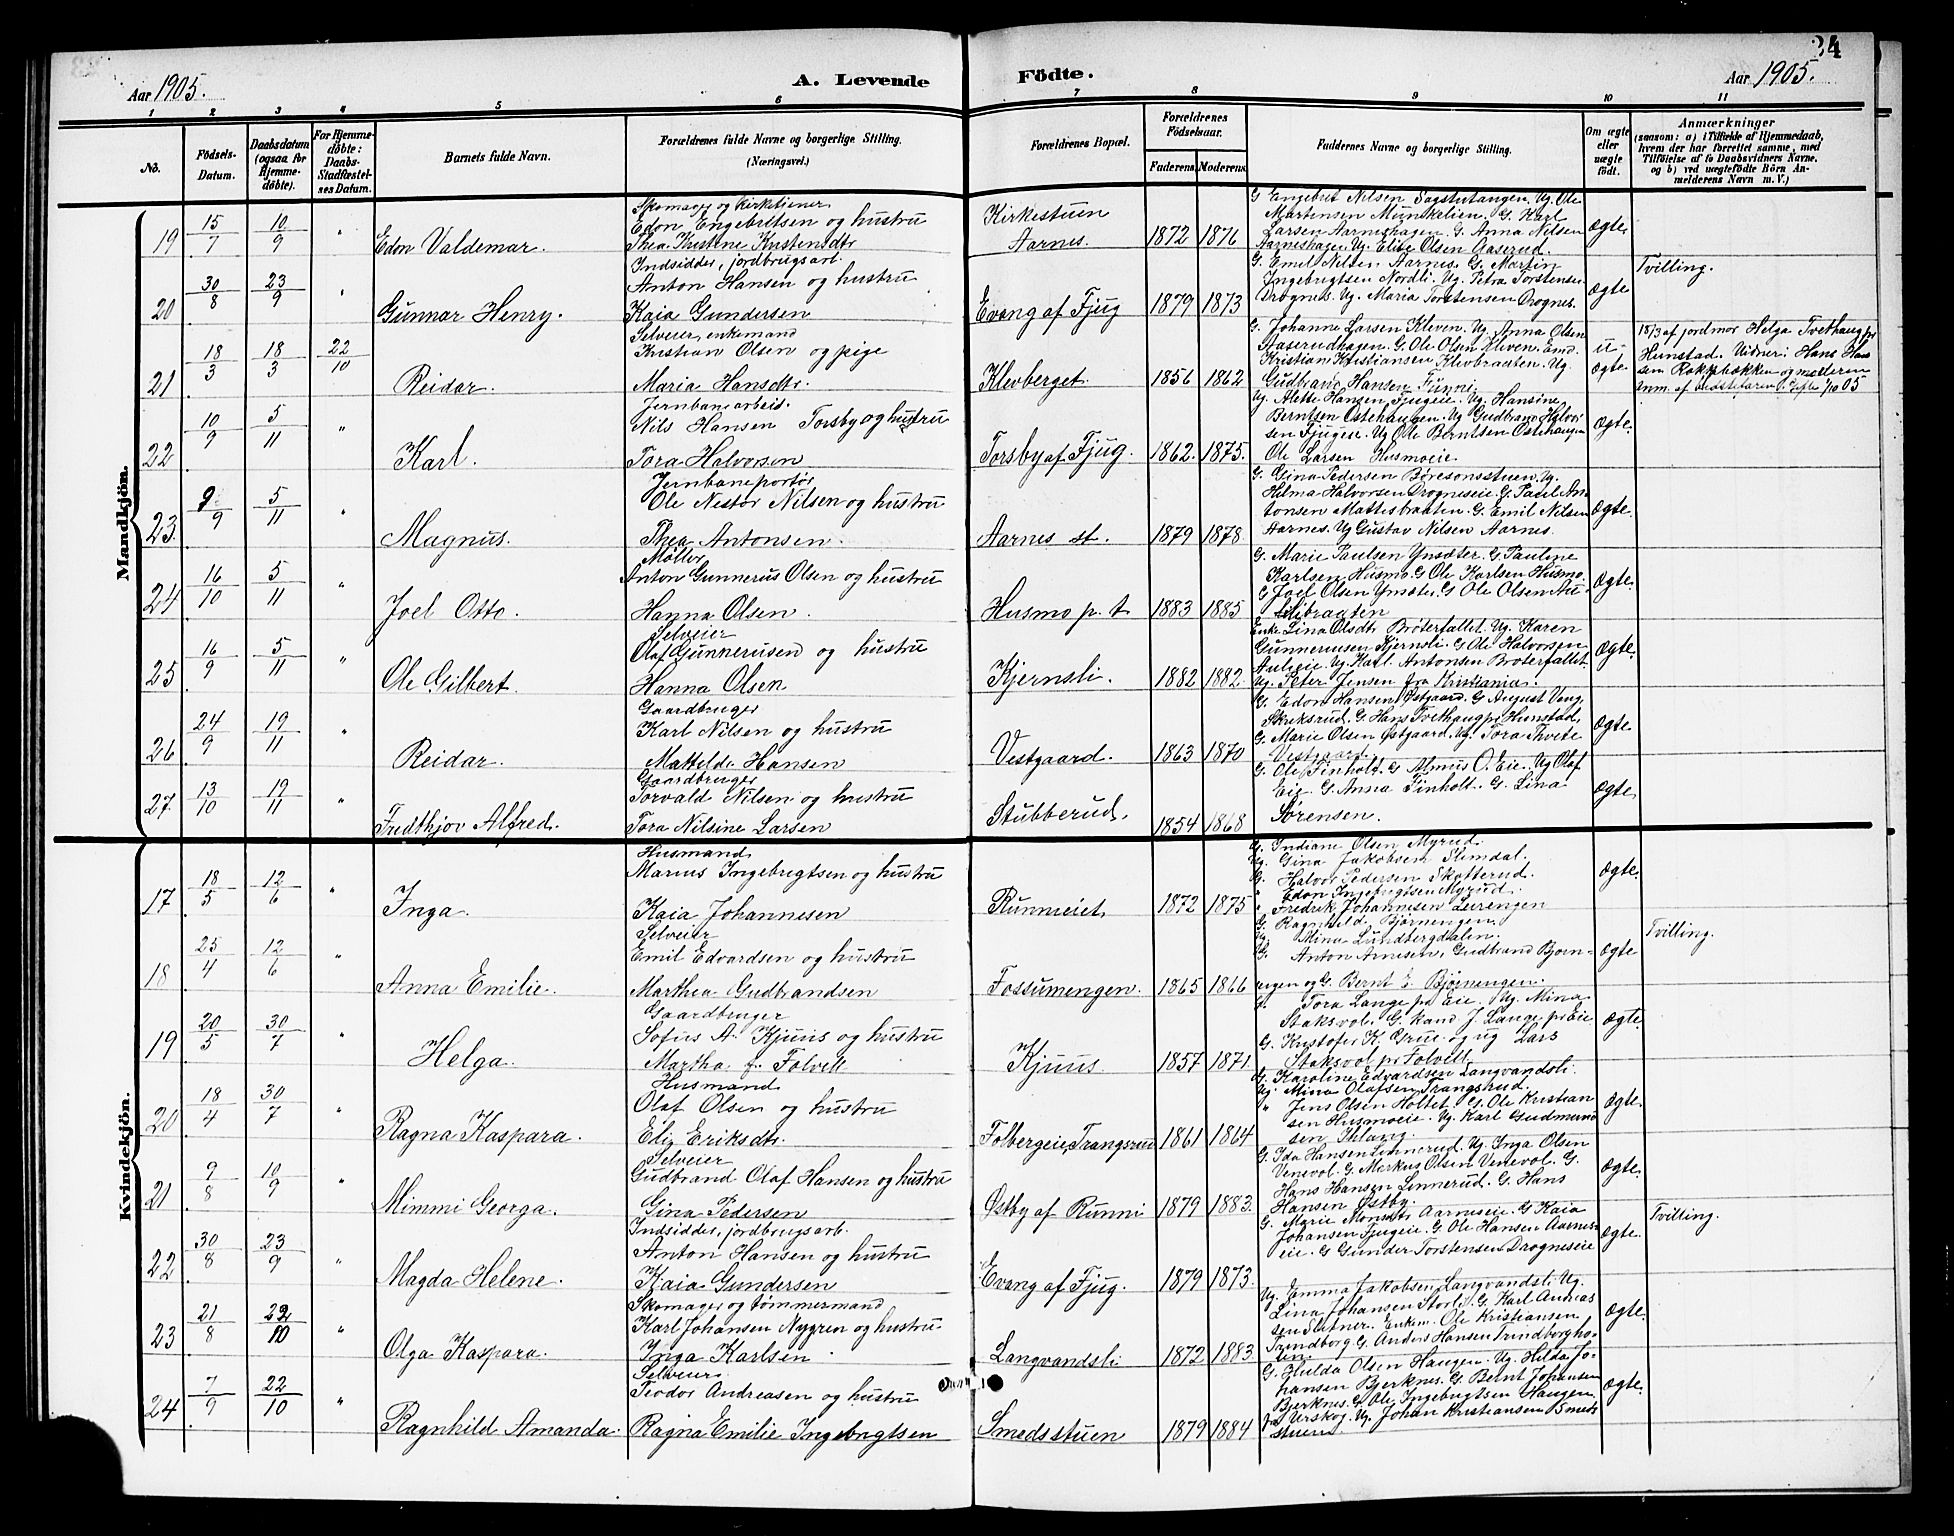 34
Aar 1905.
A. Levende Födte.
Aar 1905.
1 2 3 4 5 6 7 8 9 10 11
No.
Födsels-Datum.
Daabsdatum (ogsaa for Hjemmedöbte).
For Hjemmedöbte: Daabs-Stadfæstelses Datum.
Barnets fulde Navn.
Forældrenes fulde Navne og borgerlige Stilling.
(Næringsvei.)
Forældrenes Bopæl.
Forældrenes Födselsaar.
Faderens. Moderens.
Faddernes Navne og borgerlige Stilling.
Om ægte eller uægte födt.
Anmærkninger
(saasom: a) i Tilfælde af Hjemmedaab, hvem der har forrettet samme, med Tilföielse af to Daabsvidners Navne, og b) ved uægtefödte Börn Anmelderens Navn m. V.)
Mandkjön.
19 15/7 10/9 " Edon Valdemar.
Skomager og kirketjener
Edon Engebretsen og hustru
Thea Kristine Kristensdtr
Kirkestuen Aarnes. 1872 1876
G Engebret Nilsen Sagstutangen. Ug. Ole
Martensen Munkelien. G. Karl
Larsen Aarneshagen. G. Anna Nilsen
Aarneshagen. Ug. Elise Olsen Aaserud.
Ægte.
20 30/8 23/9 " Gunnar Henry.
Indsidder, jordbrugsarb.
Anton Hansen og hustru
Kaia Gundersen
Evang af Fjug 1879 1873
G. Emil Nilsen Aarnes. G. Martin
Ingebrigtsen Nordli. Ug. Petra Torstensen
Drognes. Ug. Maria Torstensen Drognes.
Ægte
Tvilling.
21 18/3 18/3 22/10 Reidar.
Selveier, enkemand
Kristian Olsen og pige
Maria Hansdtr.
Klevberget. 1856 1862
G. Johanne Larsen Kleven. Ug. Anna Olsen
Aaserudhagen. G. Ole Olsen Kleven. Enkd.
Kristian Kristiansen Klevbraaten. Ug.
Gudbrand Hansen Funni.
u-ægte
18/3 af jordmor Helga Tvethaug pr
Hunstad. Vidner: Hans Han
sen Rakkebækken og moderen
Anm. af bedstefaren
22 10/9 5/11 " Karl.
Jernbanearbeid.
Nils Hansen Torsby og hustru
Tora Halvorsen
Torsby af Fjug. 1862. 1875.
Ug. Alette Hansen Fjugeie. Ug. Hansine
Berntsen Østehaugen. Ug Gudbrand Halvor
sen Fjugeie. Ug Ole Berntsen Østehaugen
Ole Larsen Husmoeie.
Ægte.
23. 9/9 5/11 " Magnus.
Jernbaneportør
Ole Nestor Nilsen og hustru
Thea Antonsen.
Aarnes st. 1879 1878
G. Gina Pedersen Børesonsstuen. Ug.
Helma Halvorsen Drogneseie. G. Paul An
tonsen Mattisbraaten. G. Emil Nilsen
Aarnes. Ug Gustav Nilsen Aarnes.
Ægte.
24 16/10 5/11 " Joel Otto.
Møller
Anton Gunnerus Olsen og hustru
Hanna Olsen.
Husmo p. t 1883 1885
G. Marie Paulsen Ynsæter. G. Pauline
Karlsen Husmo. G Ole Karlsen Husmo.
G Joel Olsen Ynsæter. G Ole Olsen Au-
libraaten
Ægte.
25 16/9 5/11 " Ole Gilbert.
Selveier
Olaf Gunnerusen og hustru
Hanna Olsen
Kjernsli. 1882 1882.
Enke Lina Olsdtr Bröterfallet. Ug. Karen
Gunnerussen Kjernsli. G Ole Halvorsen
Aulieie. Ug Karl Antonsen Broterfallet
Ug. Peter Jensen fra Kristiania.
Ægte.
26 24/9 19/11 " Reidar.
Gaardbruger
Karl Nilsen og hustru
Matilde Hansen
Vestgaard. 1863 1870
G. Edon Hansen Østgaard. G August Veng
Skriksrud. G. Hans Tvethaug pr Hunstad.
G. Marie Olsen Østgaard. Ug. Tora Thvete
Vestgaard.
Ægte
27. 13/10 19/11 " Fredthjov Alfred.
Gaardbruger
Torvald Nilsen og hustru
Tora Nilsine Larsen
Stubberud. 1854 1868
G. Ole Finholt. G Almus O. Eie. Ug Olaf
Eie. G. Anna Finholt. G. Lina
Sørensen.
Ægte
Kvindekjön.
17 18/5 12/6 " Inga.
Husmand
Marius Ingebrigtsen og hustru
Kaia Johannesen
Runnieiet. 1872 1875
G. Indiane Olsen Myrud.
Ug. Gina Jakobsen Slemdal.
G. Halvor Pedersen Skotterud.
" Edon Ingebrigtsen Myrud.
" Fredrik Johannesen Leirengen
Ægte.
18 25/4 12/6 " Anna Emilie.
Selveier
Emil Edvardsen og hustru
Marthea Gudbrandsen
Fossumengen. 1865 1866
G. Ragnhild Bjørnengen.
Ug. Mina Lundbergdalen.
G. Anton Arnesen, Gudbrand Bjørn-
engen og G. Bernt E. Bjørnengen.
Ægte
Tvilling.
19 20/5 30/7 " Helga.
Gaardbruger
Sofus A. Kjuus og hustru
Martha f. Folvell
Kjuus 1857 1871.
G. Tora Lange pr Eie. Ug. Mina
Staksvol. G. kand. J. Lange pr Eie
G. Kristofer K. Grue og ug Lars
Staksvol pr Folvell
Ægte.
20 18/4 30/7 " Ragna Kaspara.
Husmand
Olaf Olsen og hustru
Elis Eriksdtr.
Folbergeie, Trangsrud 1861 1864
G. Karoline Edvardsen Langvandsli.
Ug. Mina Olafsen Trangsrud.
" Jens Olsen Holtet. G. Ole Kristian
sen Husmoeie. Ug. Karl Gudmund
sen Ihlang.
Ægte.
21 9/8 10/9 " Mimmi Georga.
Selveier
Gudbrand Olaf Hansen og hustru
Gina Pedersen
Østby af Runni 1879 1883.
G. Ida Hansen Linnerud. Ug. Inga Olsen
Venevol. G. Markus Olsen Venevol. G.
Hans Hansen Linnerud. G. Hans
Hansen Østby.
Ægte.
22 30/8 23/9 " Magda Helene.
Indsidder, jordbrugsarb.
Anton Hansen og hustru
Kaia Gundersen
Evang af Fjug. 1879 1873.
G. Marie Monsdtr Aarneseie. G Kaia
Johansen Fjugeie. G. Ole Hansen Aarnes-
eie. G Gunder Torstensen Drogneseie
Ægte.
Tvilling.
23 21/8 22/10 " Olga Kaspara.
Skomager og tømmermand
Karl Johansen Nygren og hustru
Inga Karlsen.
Langvandsli 1872 1883.
Ug. Emma Jakobsen Langvandsli. Ug.
Lina Johansen Storli. G. Karl Andreas
sen Slitner. Enkem. Ole Kristiansen
Trindborg G Anders Hansen Trindborghol-
en.
Ægte.
24 7/9 22/10 " Ragnhild Amanda.
Selveier.
Teodor Andreasen og hustru
Ragna Emilie Ingebrigtsen
Smedsstuen 1879 1884
G. Hulda Olsen Haugen. Ug. Hilda Jo-
hansen Bjerknes. G Bernt Johansen
Bjerknes. G Ole Ingebrigtsen Haugen
fra Urskog. Ug. Johan Kristiansen Smeds
stuen
Ægte.